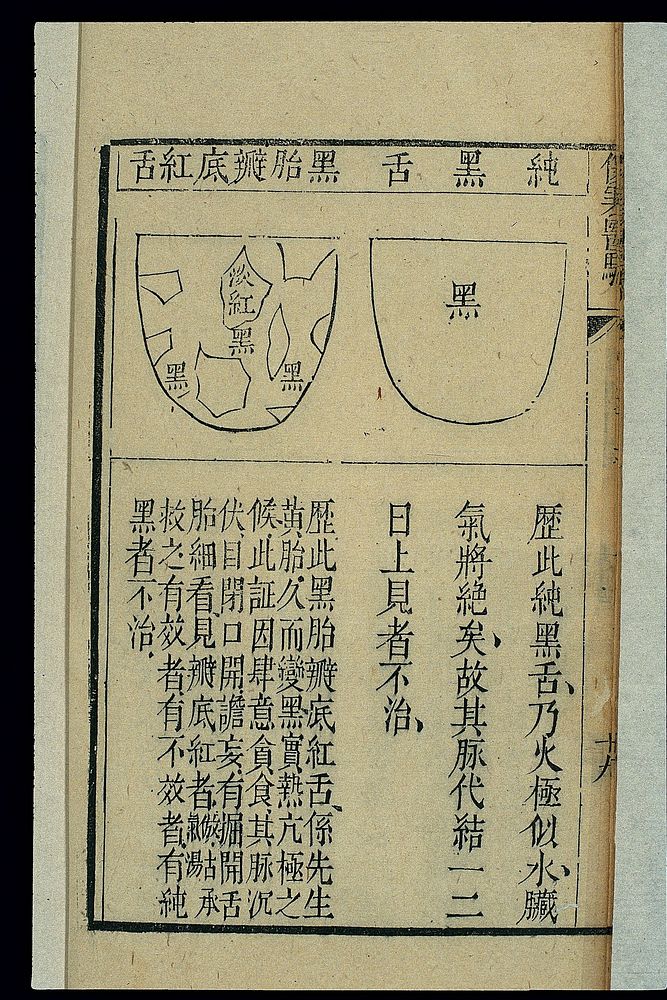 純黑舌
黑胎瓣底紅舌
黑
淡紅
黑
黑
黑
歷此純黑舌、乃火極似水、臟
氣將絕矣、故其脉代結一二
日上見者不治、
歷此黑胎瓣底紅舌、係先生
黃胎、久而變黑、實熱亢極之
候、此証因肆意貪食、其脉沉
伏、目閉口開、譫妄、有掘開舌
胎細看、見瓣底紅者、承氣湯
救之、有效者、有不效者、有純
黑者不治、
十九